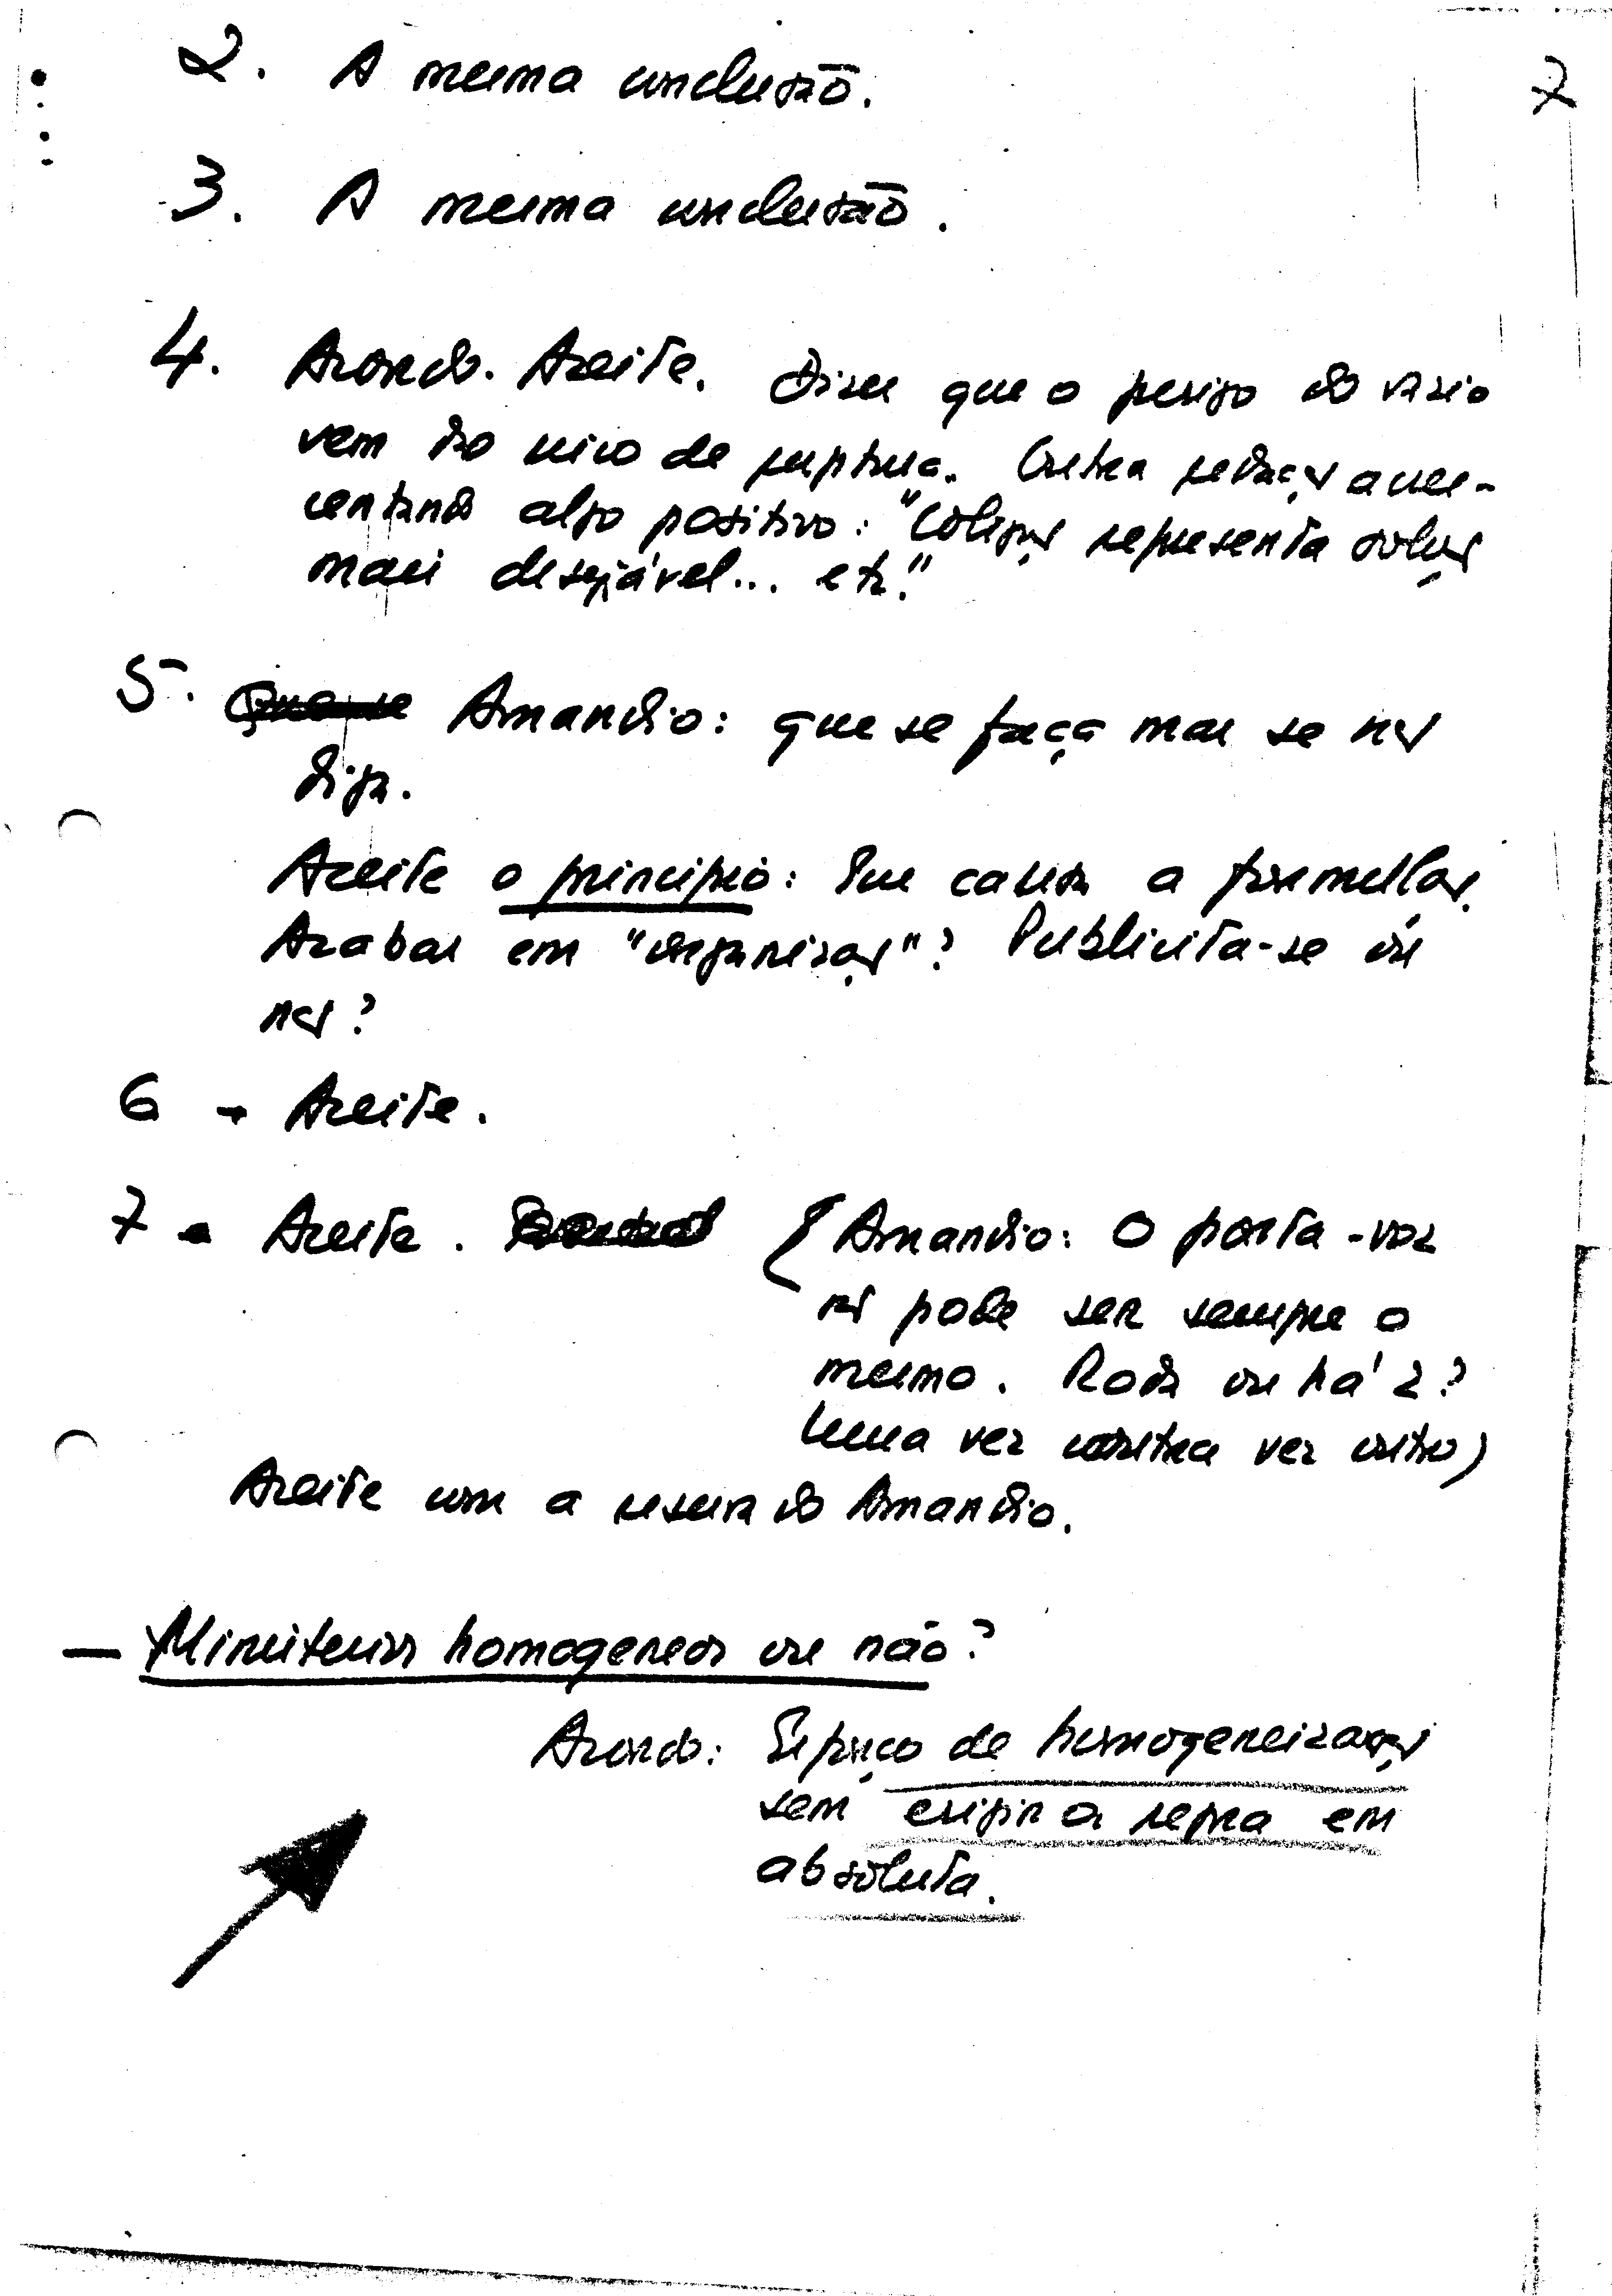 7
2. A mesma conclusão.
3. A mesma conclusão.
4. Acordo. Aceite. Dizer que o perigo do vazio
vem do risco de ruptura. Outra redacção acres-
centando algo positivo: "Coligação representa solução
mais desejável... etc."
5. Amandio: que se faça mas se não
diga.
Aceite o princípio: Em causa a formulação.
Acabar em "organização"? Publicita-se ou
não?
6 - Aceite.
7 - Aceite. (Amandio: O porta-voz
não pode ser sempre o
mesmo. Roda ou há 2?
Uma vez um outra vez outro)
Aceite com a reserva do Amandio.
— Ministérios homogeneos ou não?
Acordo: Esforço de homogeneização
sem exigir a regra em
absoluta.